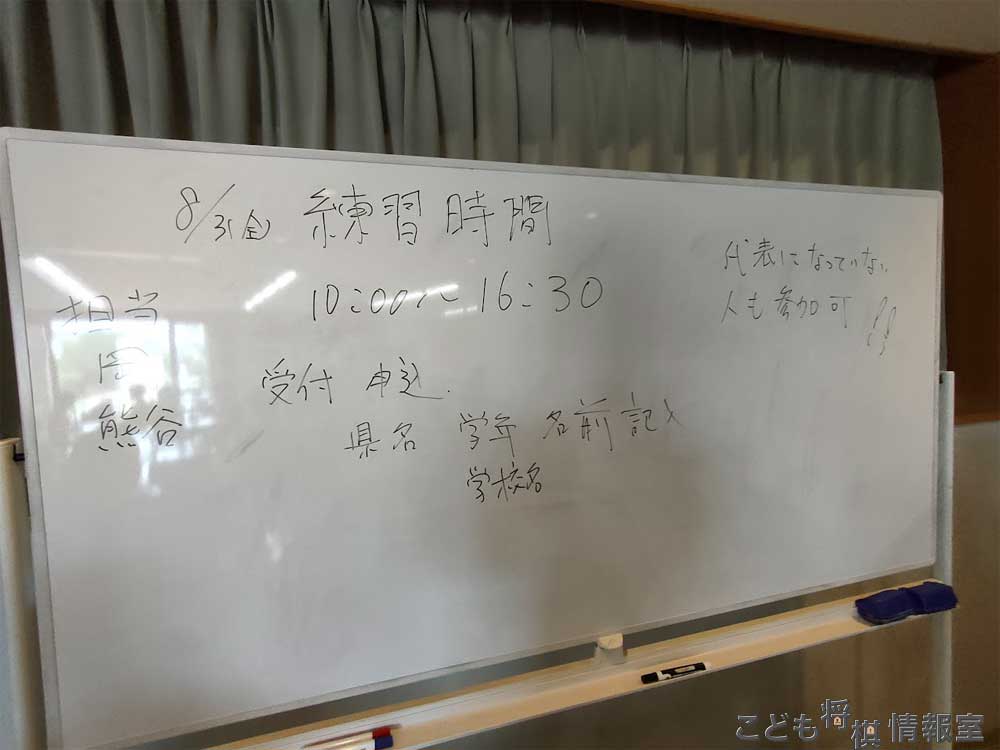 8/31(金) 練習時間
10:00〜16:30
代表になっていない
人も参加可
担当
岡
熊谷
受付 申込
県名 学年 名前 記入
学校名
こども将棋情報室